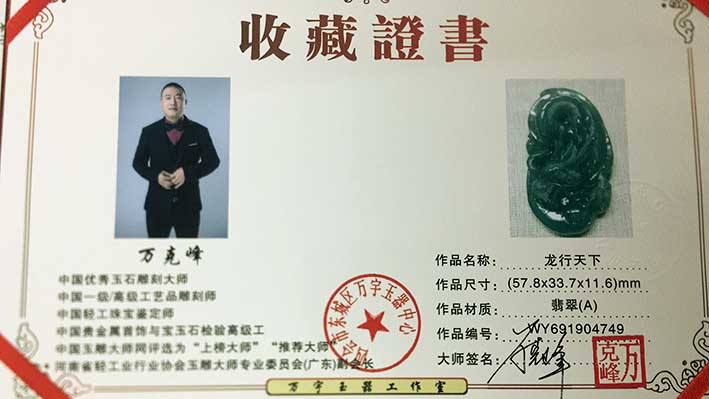 收藏證書
万克峰
中国优秀玉石雕刻大师
中国一级/高级工艺品雕刻师
中国轻工珠宝鉴定师
中国贵金属首饰与宝玉石检验高级工
中国玉雕大师网评选为“上榜大师”“推荐大师”
河南省轻工业行业协会玉雕大师专业委员会(广东)副会长
四会市东城区万字玉器中心
作品名称： 龙行天下
作品尺寸： (57.8x33.7x11.6)mm
作品材质： 翡翠(A)
作品编号： WY691904749
大师签名：
万克峰
万字玉器工作室